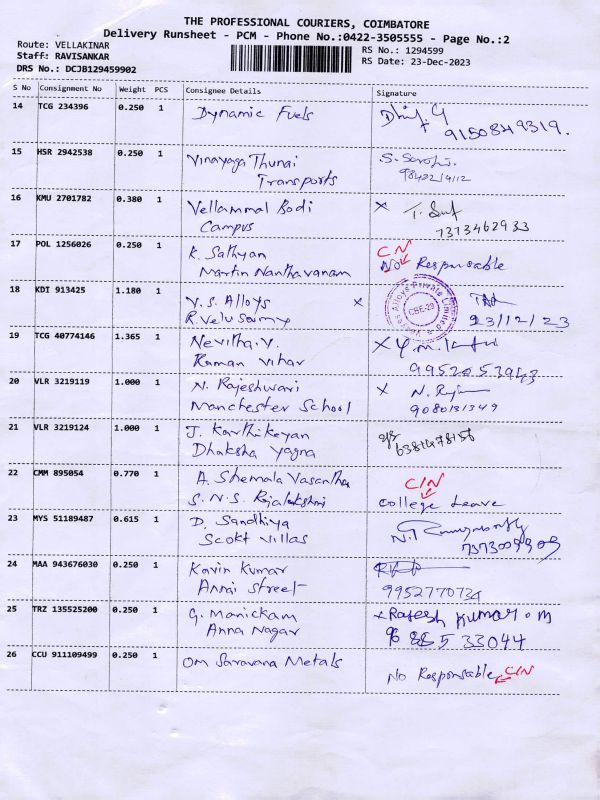 THE PROFESSIONAL COURIERS, COIMBATORE
Delivery Runsheet - PCM - Phone No.:0422-3505555 - Page No.:2
Route: VELLAKINAR
Staff: RAVISANKAR
DRS No.: DCJB129459902
RS No.: 1294599
RS Date: 23-Dec-2023
S No Consignment No Weight PCS Consignee Details Signature
14 TCG 234396 0.250 1 Dynamic Fuels
9150849319.
15 HSR 2942538 0.250 1 Vinayaga Thunai
Transports
16 KMU 2701782 0.380 1 Vellammal Bodi x
Campus 7373462933
17 POL 1256026 0.250 1 K. Sathyan C.N
Martin Nanthavanam No Responsable
18 KDI 913425 1.180 1 V.S. Alloys x
R.Velusamy 23/12/23
Alloys Private Limited
CBE-29
19 TCG 40774146 1.365 1 Nevitha.V. x
Raman Vihar 9952053943
20 VLR 3219119 1.000 1 N. Rajeshwari x
Manchester School 9080131349
21 VLR 3219124 1.000 1 J. Karthikeyan
Dhaksha Yagna
22 CMM 895054 0.770 1 A. Shemala Vasantha C/N
S.N.S. Rajalakshmi College Leave
23 MYS 51189487 0.615 1 D. Sandhiya
Scokt Villas
24 MAA 943676030 0.250 1 Kavin Kumar
Annai Street 9952770734
25 TRZ 135525200 0.250 1 G. Manickam x Rajesh Kumar.m
Anna Nagar
26 CCU 911109499 0.250 1 Om Saravana Metals
No Responsable C/N